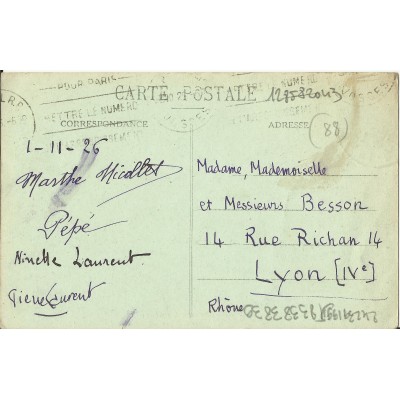 POUR PARIS
METTRE LE NUMERO
NUMERO
CARTE POSTALE
CORRESPONDANCE
ADRESSE
(88)
1-11-26
Marthe Micollet
Pépé
Ninette Laurent
Pierre Laurent
Madame, Mademoiselle
et Messieurs Besson
14 Rue Richan 14
Lyon [IVe]
Rhône